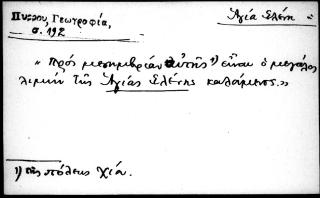 Πύρρου, Γεωγραφία, Ἁγία Ἑλένη
σ. 192
« Πρός μεσημβρίαν αὐτῆς ¹) εἶναι ὁ μεγάλος
λιμήν τῆς Ἁγίας Ἑλένης καλούμενος. »
1) τῆς πόλεως Χία.